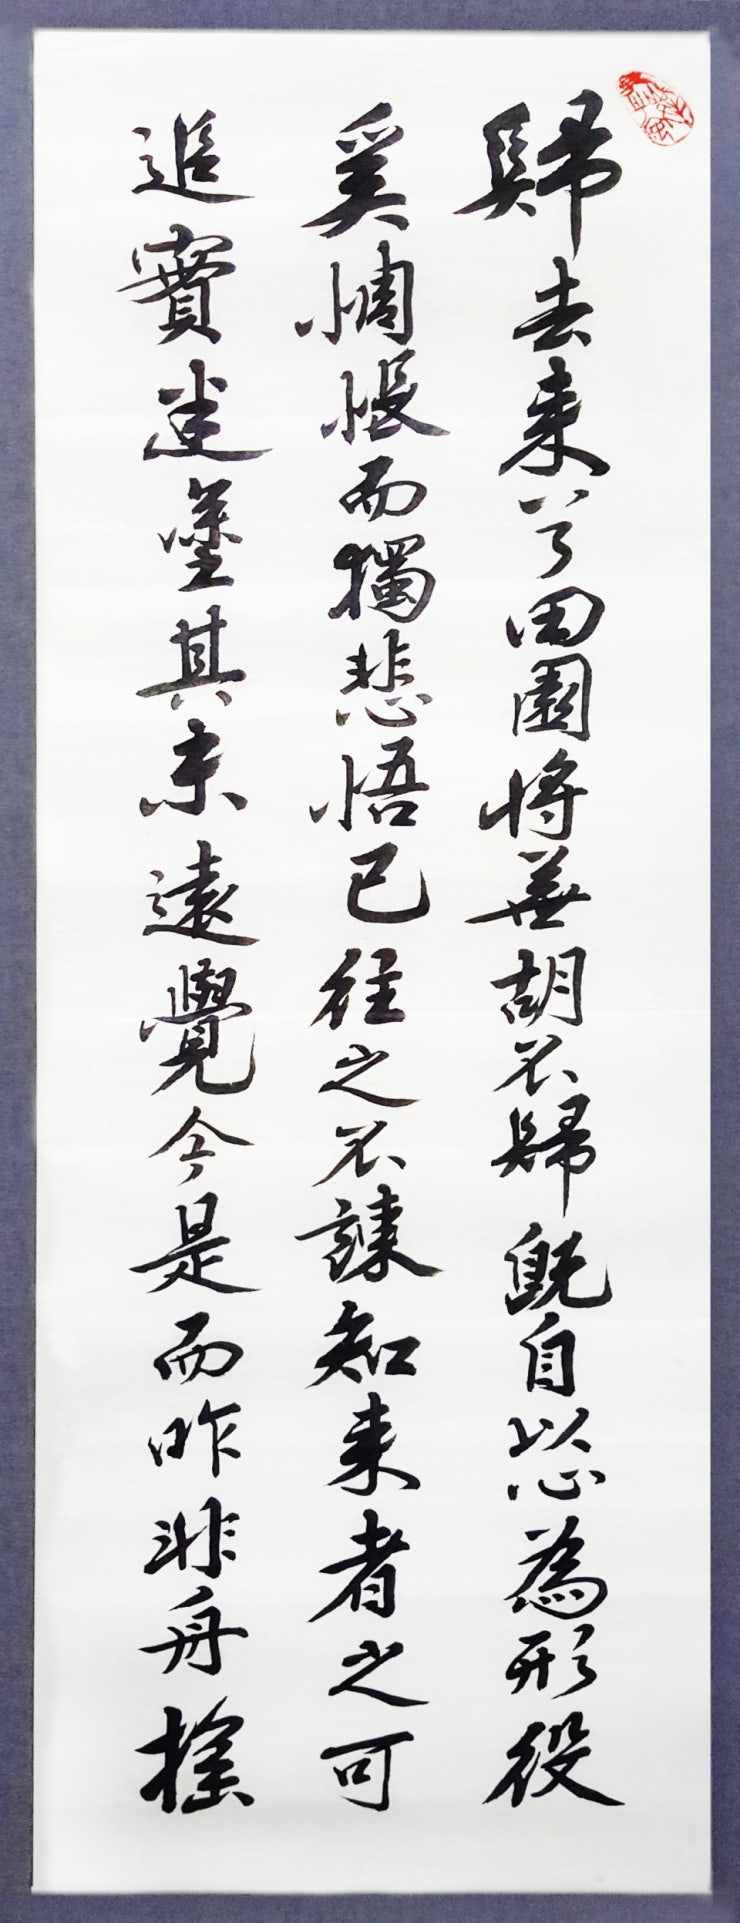 歸去來兮田園將蕪胡不歸既自以心為形役
奚惆悵而獨悲悟已往之不諫知来者之可
追實迷塗其未遠覺今是而昨非舟搖